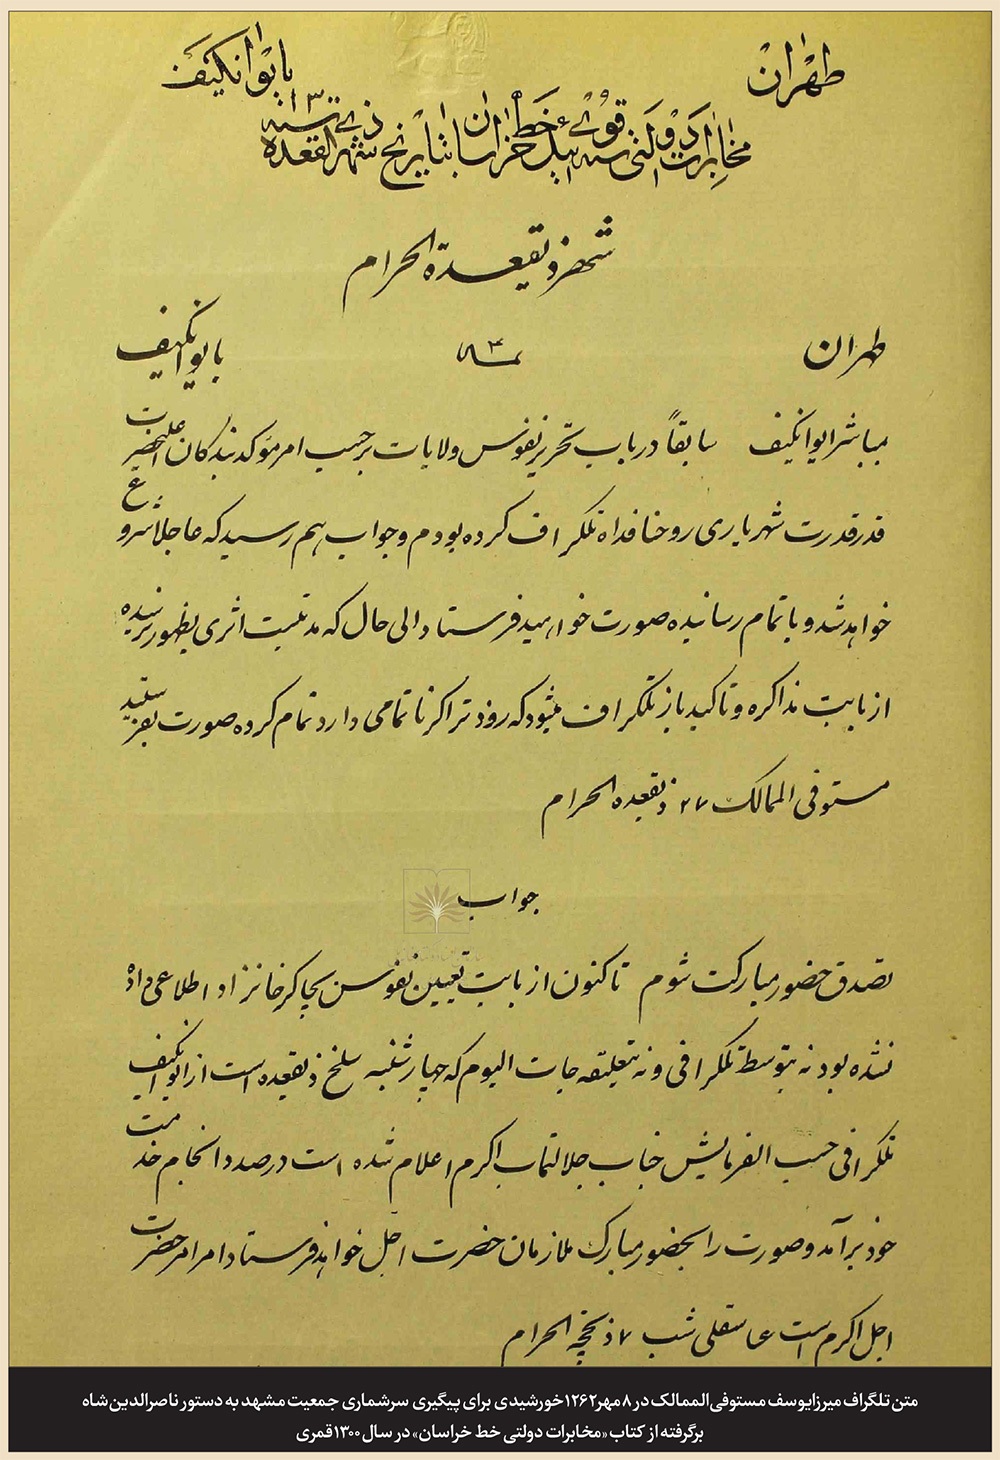 طهران بایوانکیف
مخابرات دولتی سنه قوی ئیل خط خراسان بتاریخ شهر ذی القعده سنه ۱۳
شهر ذیقعدة الحرام
طهران نمره ۳ بایوانکیف
مباشر ایوانکیف سابقاً در باب تحریر نفوس ولایات برحسب امر مؤکد بندکان اعلیحضرت
قدرقدرت شهریاری روحنا فداه تلکراف کرده بودم و جواب هم رسید که عاجلا شروع
خواهد شد و باتمام رسانیده صورت خواهید فرستاد الی حال که مدتیست اثری بظهور نرسیده
از بابت مذاکره و تاکید باز تلکراف میشود که زودتر اکر ناتمامی دارد تمام کرده صورت بفرستید
مستوفی الممالک ۲۷ ذیقعده الحرام
جواب
تصدق حضور مبارکت شوم تاکنون از بابت تعیین نفوس بچاکر خانزاد اطلاعی داده
نشده بود نه بتوسط تلکرافی و نه بتعلیقه جات الیوم که چهارشنبه سلخ ذیقعده است از ایوانکیف
تلکرافی حسب الفرمایش جناب جلالتماب اکرم اعلام شده است درصدد انجام خدمت
خود برآمد و صورت را بحضور مبارک ملازمان حضرت اجل خواهد فرستاد امر امر حضرت
اجل اکرم است شب ۷ ذیحجه الحرام
متن تلگراف میرزایوسف مستوفی‌الممالک در ۸ مهر ۱۲۶۲ خورشیدی برای پیگیری سرشماری جمعیت مشهد به دستور ناصرالدین شاه
برگرفته از کتاب «مخابرات دولتی خط خراسان» در سال ۱۳۰۰ قمری